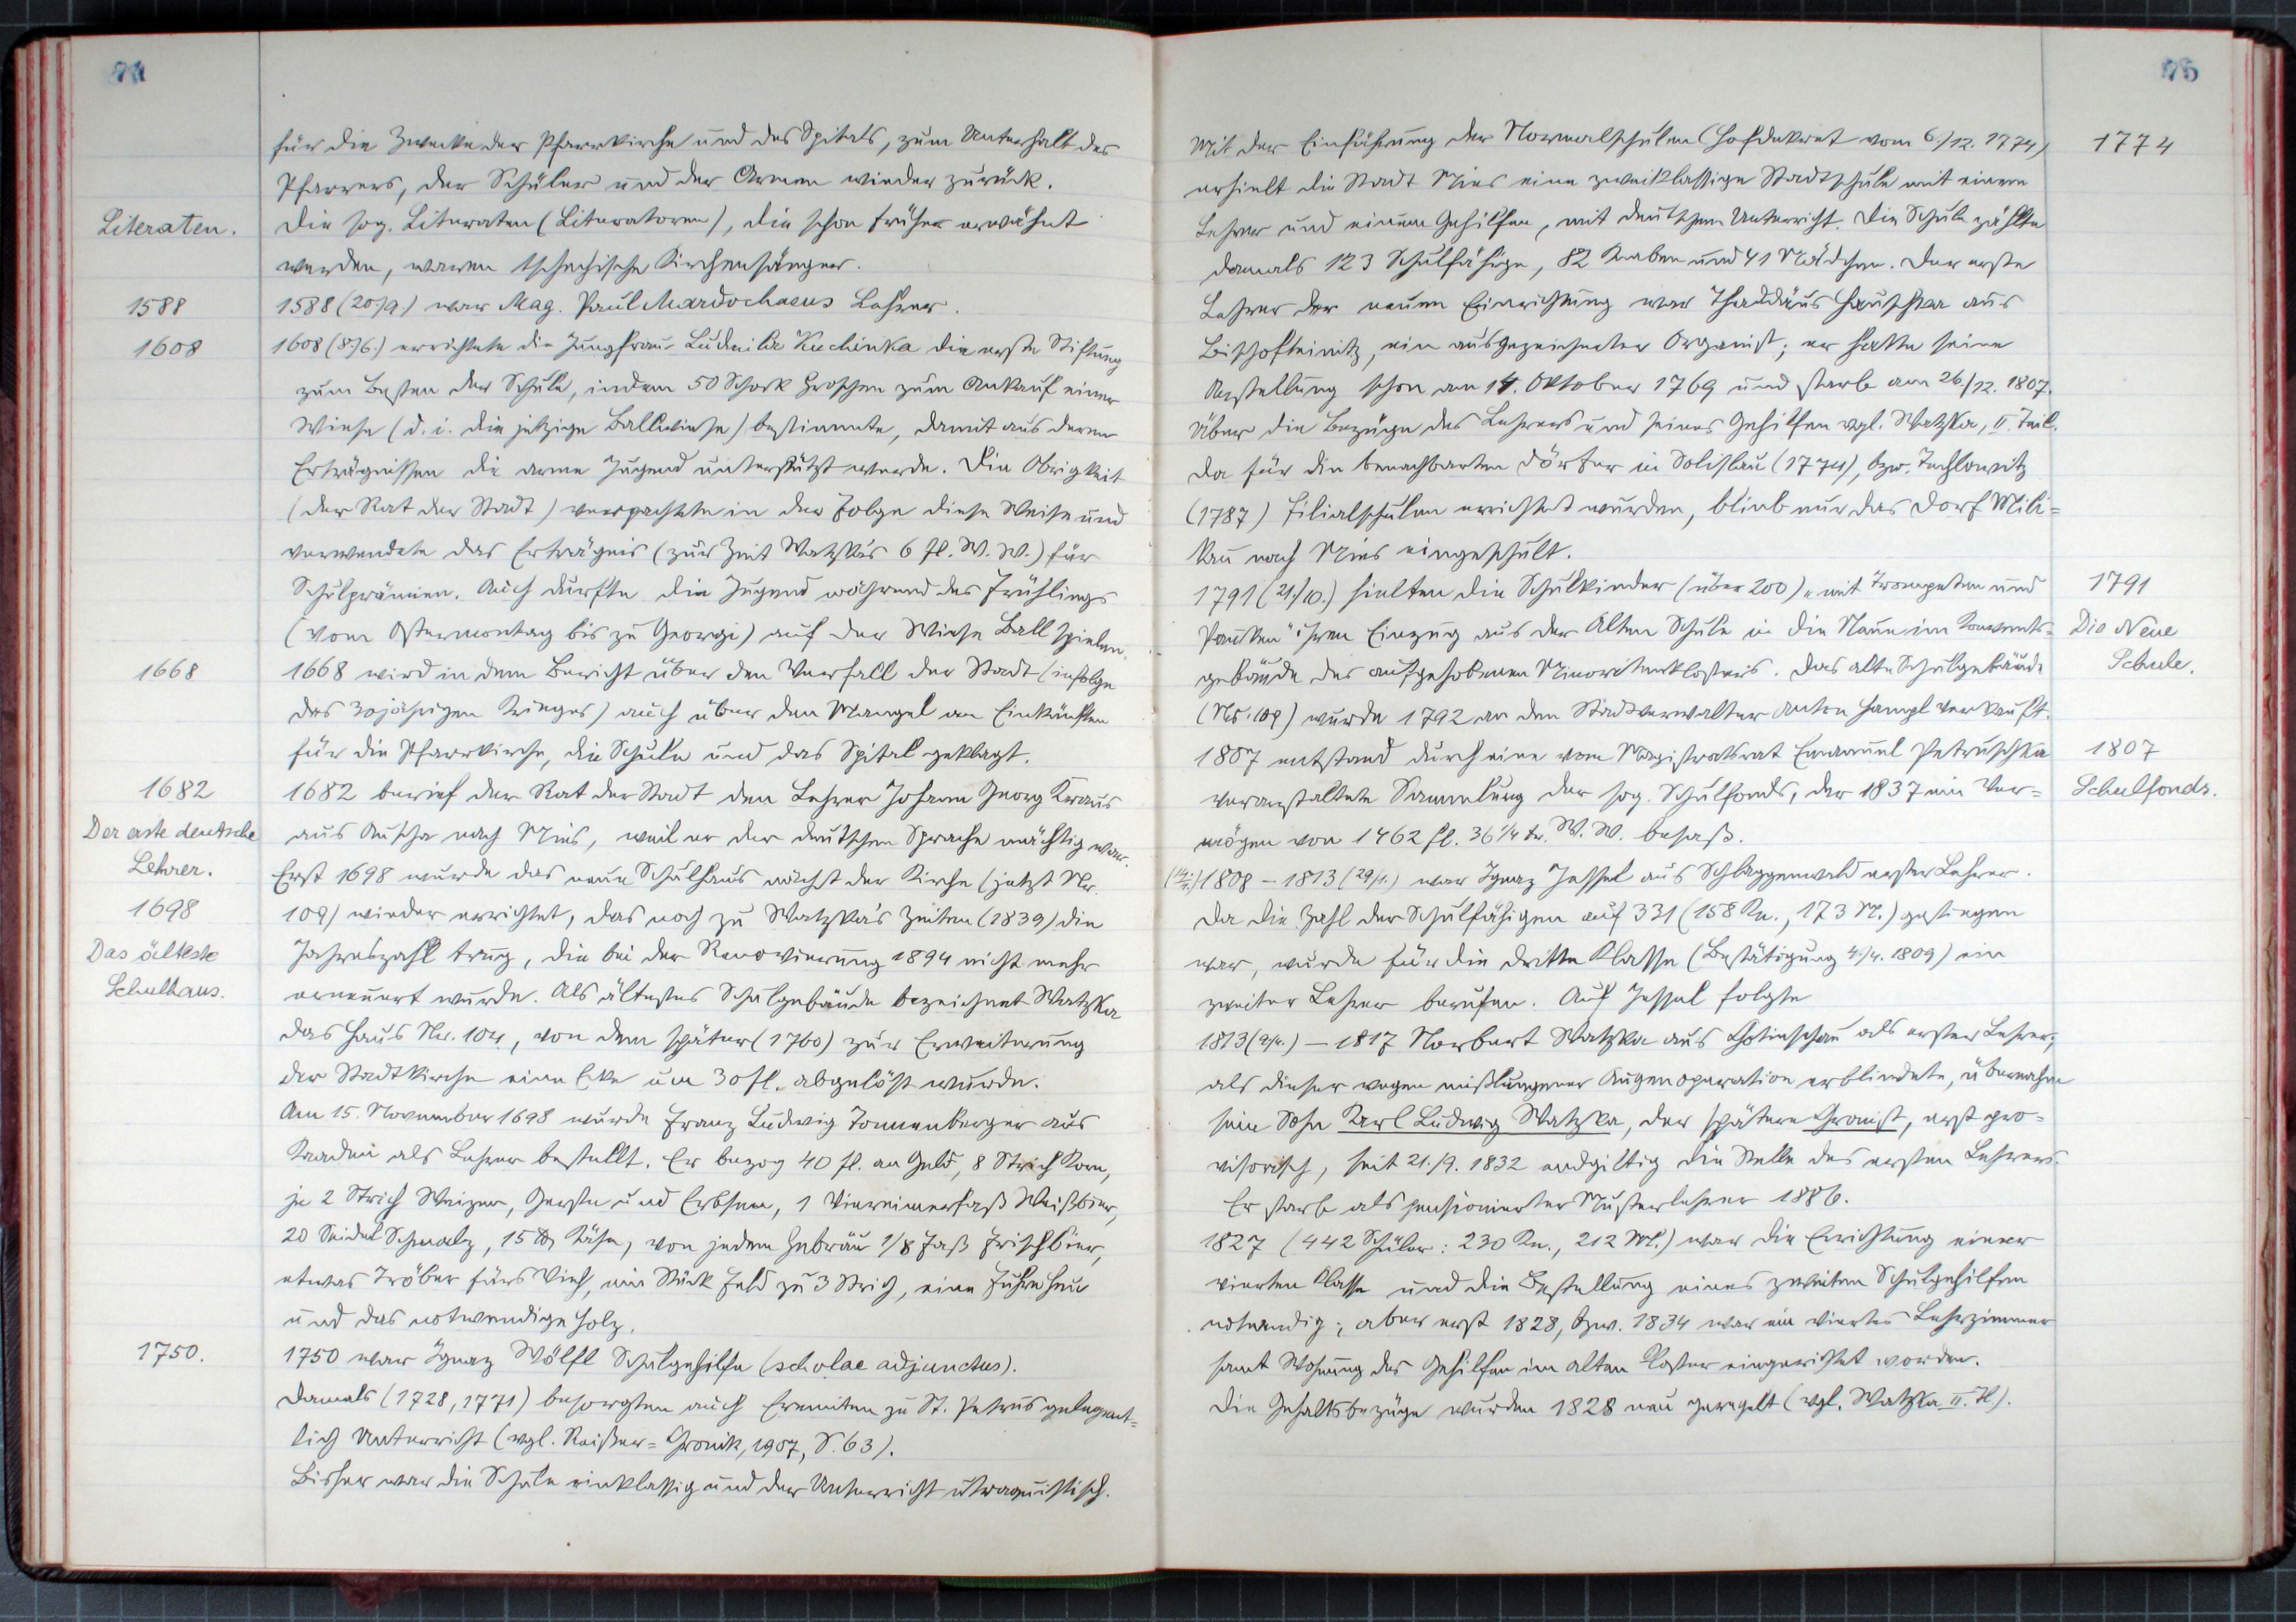 74
für die Zwecke der Pfarrkirche und des Spitals, zum Unterhalt des
Pfarrers, der Schüler und der Armen wieder zurück.
Literaten.
Die sog. Literaten (Literatoren), die schon früher erwähnt
werden, waren tschechische Kirchensänger.
1588
1588 (20/9.) war Mag. Paul Mardochaeus Lehrer.
1608
1608 (8/6.) errichtete die Jungfrau Ludmila Kuchinka die erste Stiftung
zum Besten der Schule, indem 50 Schock Groschen zum Ankauf einer
Wiese (d. i. die jetzige Ballwiese) bestimmte, damit aus deren
Erträgnissen die arme Jugend unterstützt werde. Die Obrigkeit
(der Rat der Stadt) verpachtete in der Folge diese Weise und
verwendete das Erträgnis (zur Zeit Watzka's 6 fl. W. W.) für
Schulprämien. Auch durfte die Jugend während des Frühlings
(vom Ostermontag bis zu Georgi) auf der Wiese Ball spielen.
1668
1668 wird in dem Bericht über den Verfall der Stadt (infolge
des 30jährigen Krieges) auch über den Mangel an Einkünften
für die Pfarrkirche, die Schule und das Spital geklagt.
1682
1682 berief der Rat der Stadt den Lehrer Johann Georg Kraus
Der erste deutsche
aus Auscha nach Mies, weil er der deutschen Sprache mächtig war.
Lehrer.
Erst 1698 wurde das neue Schulhaus nächst der Kirche (jetzt Nr.
1698
109) wieder errichtet, das noch zu Watzka's Zeiten (1839) die
Das älteste
Jahreszahl trug, die bei der Renovierung 1894 nicht mehr
Schulhaus.
erneuert wurde. Als ältestes Schulgebäude bezeichnet Watzka
das Haus Nr. 104, von dem später (1760) zur Erweiterung
der Stadtkirche eine Ecke um 30 fl. abgelöst wurde.
Am 15. November 1698 wurde Franz Ludwig Tonnenberger aus
Kaaden als Lehrer bestellt. Er bezog 40 fl. an Geld, 8 Strich Korn,
je 2 Strich Weizen, Gerste und Erbsen, 1 Viereimerfaß Weißbier,
20 Seidel Schmalz, 15 ℔ Käse, von jedem Gebräu 1/8 Faß Frischbier,
etwas Träber fürs Vieh, ein Stück Feld zu 3 Strich, eine Fuhre Heu
und das notwendige Holz.
1750.
1750 war Ignaz Wölfl Schulgehilfe (scholae adjunctus).
Damals (1728, 1771) besorgten auch Eremiten zu St. Petrus gelegent-
lich Unterricht (vgl. Reißer-Chronik, 1907, S. 63).
Bisher war die Schule einklassig und der Unterricht utraquistisch.
75
Mit der Einführung der Normalschulen (Hofdekret vom 6./12. 1774)
1774
erhielt die Stadt Mies eine zweiklassige Stadtschule mit einem
Lehrer und einem Gehilfen, mit deutschem Unterricht. Die Schule zählte
damals 123 Schulfähige, 82 Knaben und 41 Mädchen. Der erste
Lehrer der neuen Einrichtung war Thaddäus Hauschka aus
Bischofteinitz, ein ausgezeichneter Organist; er hatte seine
Anstellung schon am 14. Oktober 1769 und starb am 26./12. 1807.
Über die Bezüge des Lehrers und seines Gehilfen vgl. Watzka, II. Teil.
Da für die benachbarten Dörfer in Solislau (1774), bzw. Techlowitz
(1787) Filialschulen errichtet wurden, blieb nur das Dorf Mili-
kau nach Mies eingeschult.
1791
1791 (21./10.) hielten die Schulkinder (über 200) „mit Trompeten und
Pauken" ihren Einzug aus der Alten Schule in die Neue im Konvents-
Die Neue
gebäude des aufgehobenen Minoritenklosters. Das alte Schulgebäude
Schule.
(Nr. 109) wurde 1792 an den Stadtverwalter Anton Hampl verkauft.
1807
1807 entstand durch eine vom Magistratsrat Emanuel Petruschka
veranstaltete Sammlung der sog. Schulfonds, der 1837 ein Ver-
Schulfonds.
mögen von 1462 fl. 36 1/4 kr. W. W. besaß.
1808 – 1813 (29/1.) war Ignaz Jessel aus Schlaggenwald erster Lehrer.
Da die Zahl der Schulfähigen auf 331 (158 Kn., 173 M.) gestiegen
war, wurde für die dritte Klasse (Bestätigung 4./4. 1809) ein
zweiter Lehrer berufen. Auf Jessel folgte
1813 (2/4.) – 1817 Norbert Watzka aus Chotieschau als erster Lehrer;
als dieser wegen mißlungener Augenoperation erblindete, übernahm
sein Sohn Karl Ludwig Watzka, der spätere Chronist, erst pro-
visorisch, seit 21./9. 1832 endgiltig die Stelle des ersten Lehrers.
Er starb als pensionierter Musterlehrer 1886.
1827 (442 Schüler: 230 Kn., 212 M.) war die Errichtung einer
vierten Klasse und die Bestellung eines zweiten Schulgehilfen
notwendig; aber erst 1828, bzw. 1834 war ein viertes Lehrzimmer
samt Wohnung des Gehilfen im alten Kloster eingerichtet worden.
Die Gehaltsbezüge wurden 1828 neu geregelt (vgl. Watzka II. Tl).